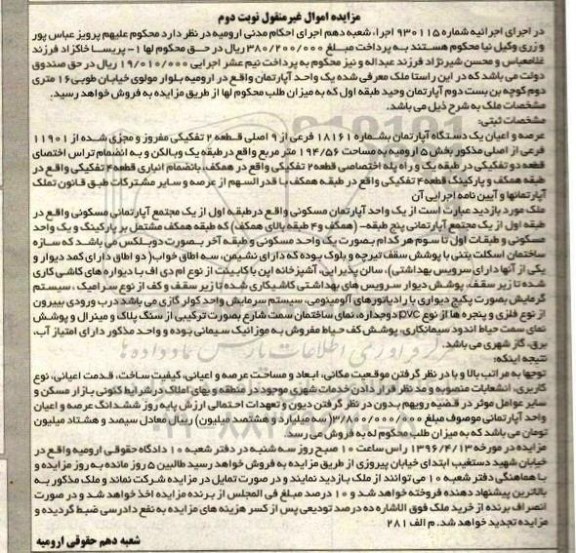 مزایده اموال غیرمنقول نوبت دوم
در اجرای اجرائیه شماره ۹۳۰۱۱۵ اجرا، شعبه دهم اجرای احکام مدنی ارومیه در نظر دارد محکوم علیهم پرویز عباس پور
و زری وکیل نیا محکوم هستند به پرداخت مبلغ ۳۸۰/۲۰۰/۰۰۰ ریال در حق محکوم لها ۱- پریسا خاکزاد فرزند
غلامعباس و محسن شیرنژاد فرزند عبداله و نیز محکوم به پرداخت نیم عشر اجرایی ۱۹/۰۱۰/۰۰۰ ریال در حق صندوق
دولت می باشد که در این راستا ملک معرفی شده یک واحد آپارتمان واقع در ارومیه بلوار مولوی خیابان طوبی ۱۶ متری
دوم کوچه بن بست دوم آپارتمان وحید طبقه اول که به میزان طلب محکوم لها از طریق مزایده به فروش خواهد رسید.
مشخصات ملک به شرح ذیل می باشد.
مشخصات ثبتی:
عرصه و اعیان یک دستگاه آپارتمان بشماره ۱۸۱۶۱ فرعی از ۹ اصلی قطعه ۲ تفکیکی مفروز و مجزی شده از ۱۱۹۰۱
فرعی از اصلی مذکور بخش ۵ ارومیه به مساحت ۱۹۴/۵۶ متر مربع واقع در طبقه یک وبالکن و به انضمام تراس اختصاصی
قطعه دو تفکیکی در طبقه یک و راه پله اختصاصی قطعه ۲ تفکیکی واقع در همکف، بانضمام انباری قطعه ۴ تفکیکی واقع در
طبقه همکف و پارکینگ قطعه ۲ تفکیکی واقع در طبقه همکف با قدرالسهم از عرصه و سایر مشترکات طبق قانون تملک
آپارتمانها و آیین نامه اجرایی آن
ملک مورد بازدید عبارت است از یک واحد آپارتمان مسکونی واقع در طبقه اول از یک مجتمع آپارتمانی مسکونی واقع در
طبقه اول از یک مجتمع آپارتمانی پنج طبقه- (همکف و ۴ طبقه بالای همکف) که طبقه همکف مشتمل بر پارکینگ و یک واحد
مسکونی و طبقات اول تا سوم هر کدام بصورت یک واحد مسکونی و طبقه آخر بصورت دوبلکس می باشد که سازه
ساختمان اسکلت بتنی با پوشش سقف تیرچه و بلوک بوده که دارای نشیمن، سه اطاق خواب( دو اطاق دارای کمد دیوار و
یکی از آنها دارای سرویس بهداشتی)، سالن پذیرایی، آشپزخانه اپن با کابینت از نوع ام دی اف با دیواره های کاشی کاری
شده تا زیر سقف، پوشش دیوار سرویس های بهداشتی کاشیکاری شده تا زیر سقف و کف از نوع سرامیک، سیستم
گرمایش بصورت پکیج دیواری با رادیاتورهای آلومینومی، سیستم سرمایش واحد کولر گازی می باشد درب ورودی بیرون
از نوع فلزی و پنجره ها از نوع pvc دوجداره، نمای ساختمان سمت شارع بصورت ترکیبی از سنگ پلاک و مینرال و پوشش
نمای سمت حیاط اندود سیمانکاری، پوشش کف حیاط مفروش به موزائیک سیمانی بوده و واحد مذکور دارای امتیاز آب،
برق، گاز شهری می باشد.
نتیجه اینکه:
توجها به مراتب بالا و با در نظر گرفتن موقعیت مکانی، ابعاد و مساحت عرصه و اعیانی، کیفیت ساخت، قدمت اعیانی، نوع
کاربری، انشعابات منصوبه و مد نظر قرار دادن خدمات شهری موجود در منطقه و بهای املاک درشرایط کنونی بازار مسکن و
سایر عوامل موثر در قضیه رویهم بدون در نظر گرفتن دیون و تعهدات احتمالی ارزش پایه روز ششدانگ عرصه و اعیان
واحد آپارتمانی موصوف مبلغ ۳/۸۰۰/۰۰۰/۰۰۰ (سه میلیارد و هشتصد میلیون) ریال معادل سیصد و هشتاد میلیون
تومان می باشد که به میزان طلب محکوم له به فروش می رسد
مزایده در مورخه ۱۳۹۶/۴/۱۳ راس ساعت ۱۰ صبح روز سه شنبه در دفتر شعبه ۱۰ دادگاه حقوقی ارومیه واقع در
خیابان شهید دستغیب ابتدای خیابان پیروزی از طریق مزایده به فروش خواهد رسید طالبین ۵ روز مانده به روز مزایده و
با هماهنگی دفتر شعبه ۱۰ می توانند از ملک بازدید نمایند و در صورت تمایل در مزایده شرکت نماند و ملک مذکور به
بالاترین پیشنهاد دهنده فروخته خواهد شد و ۱۰ درصد مبلغ فی المجلس از برنده مزایده اخذ خواهد شد و در صورت
انصراف برنده از خرید ملک فوق الاشاره ده درصد تودیعی پس از کسر هزینه های مزایده به نفع دادرسی ضبط گردیده و
مزایده تجدید خواهد شد. م الف ۲۸۱
شعبه دهم حقوقی ارومیه